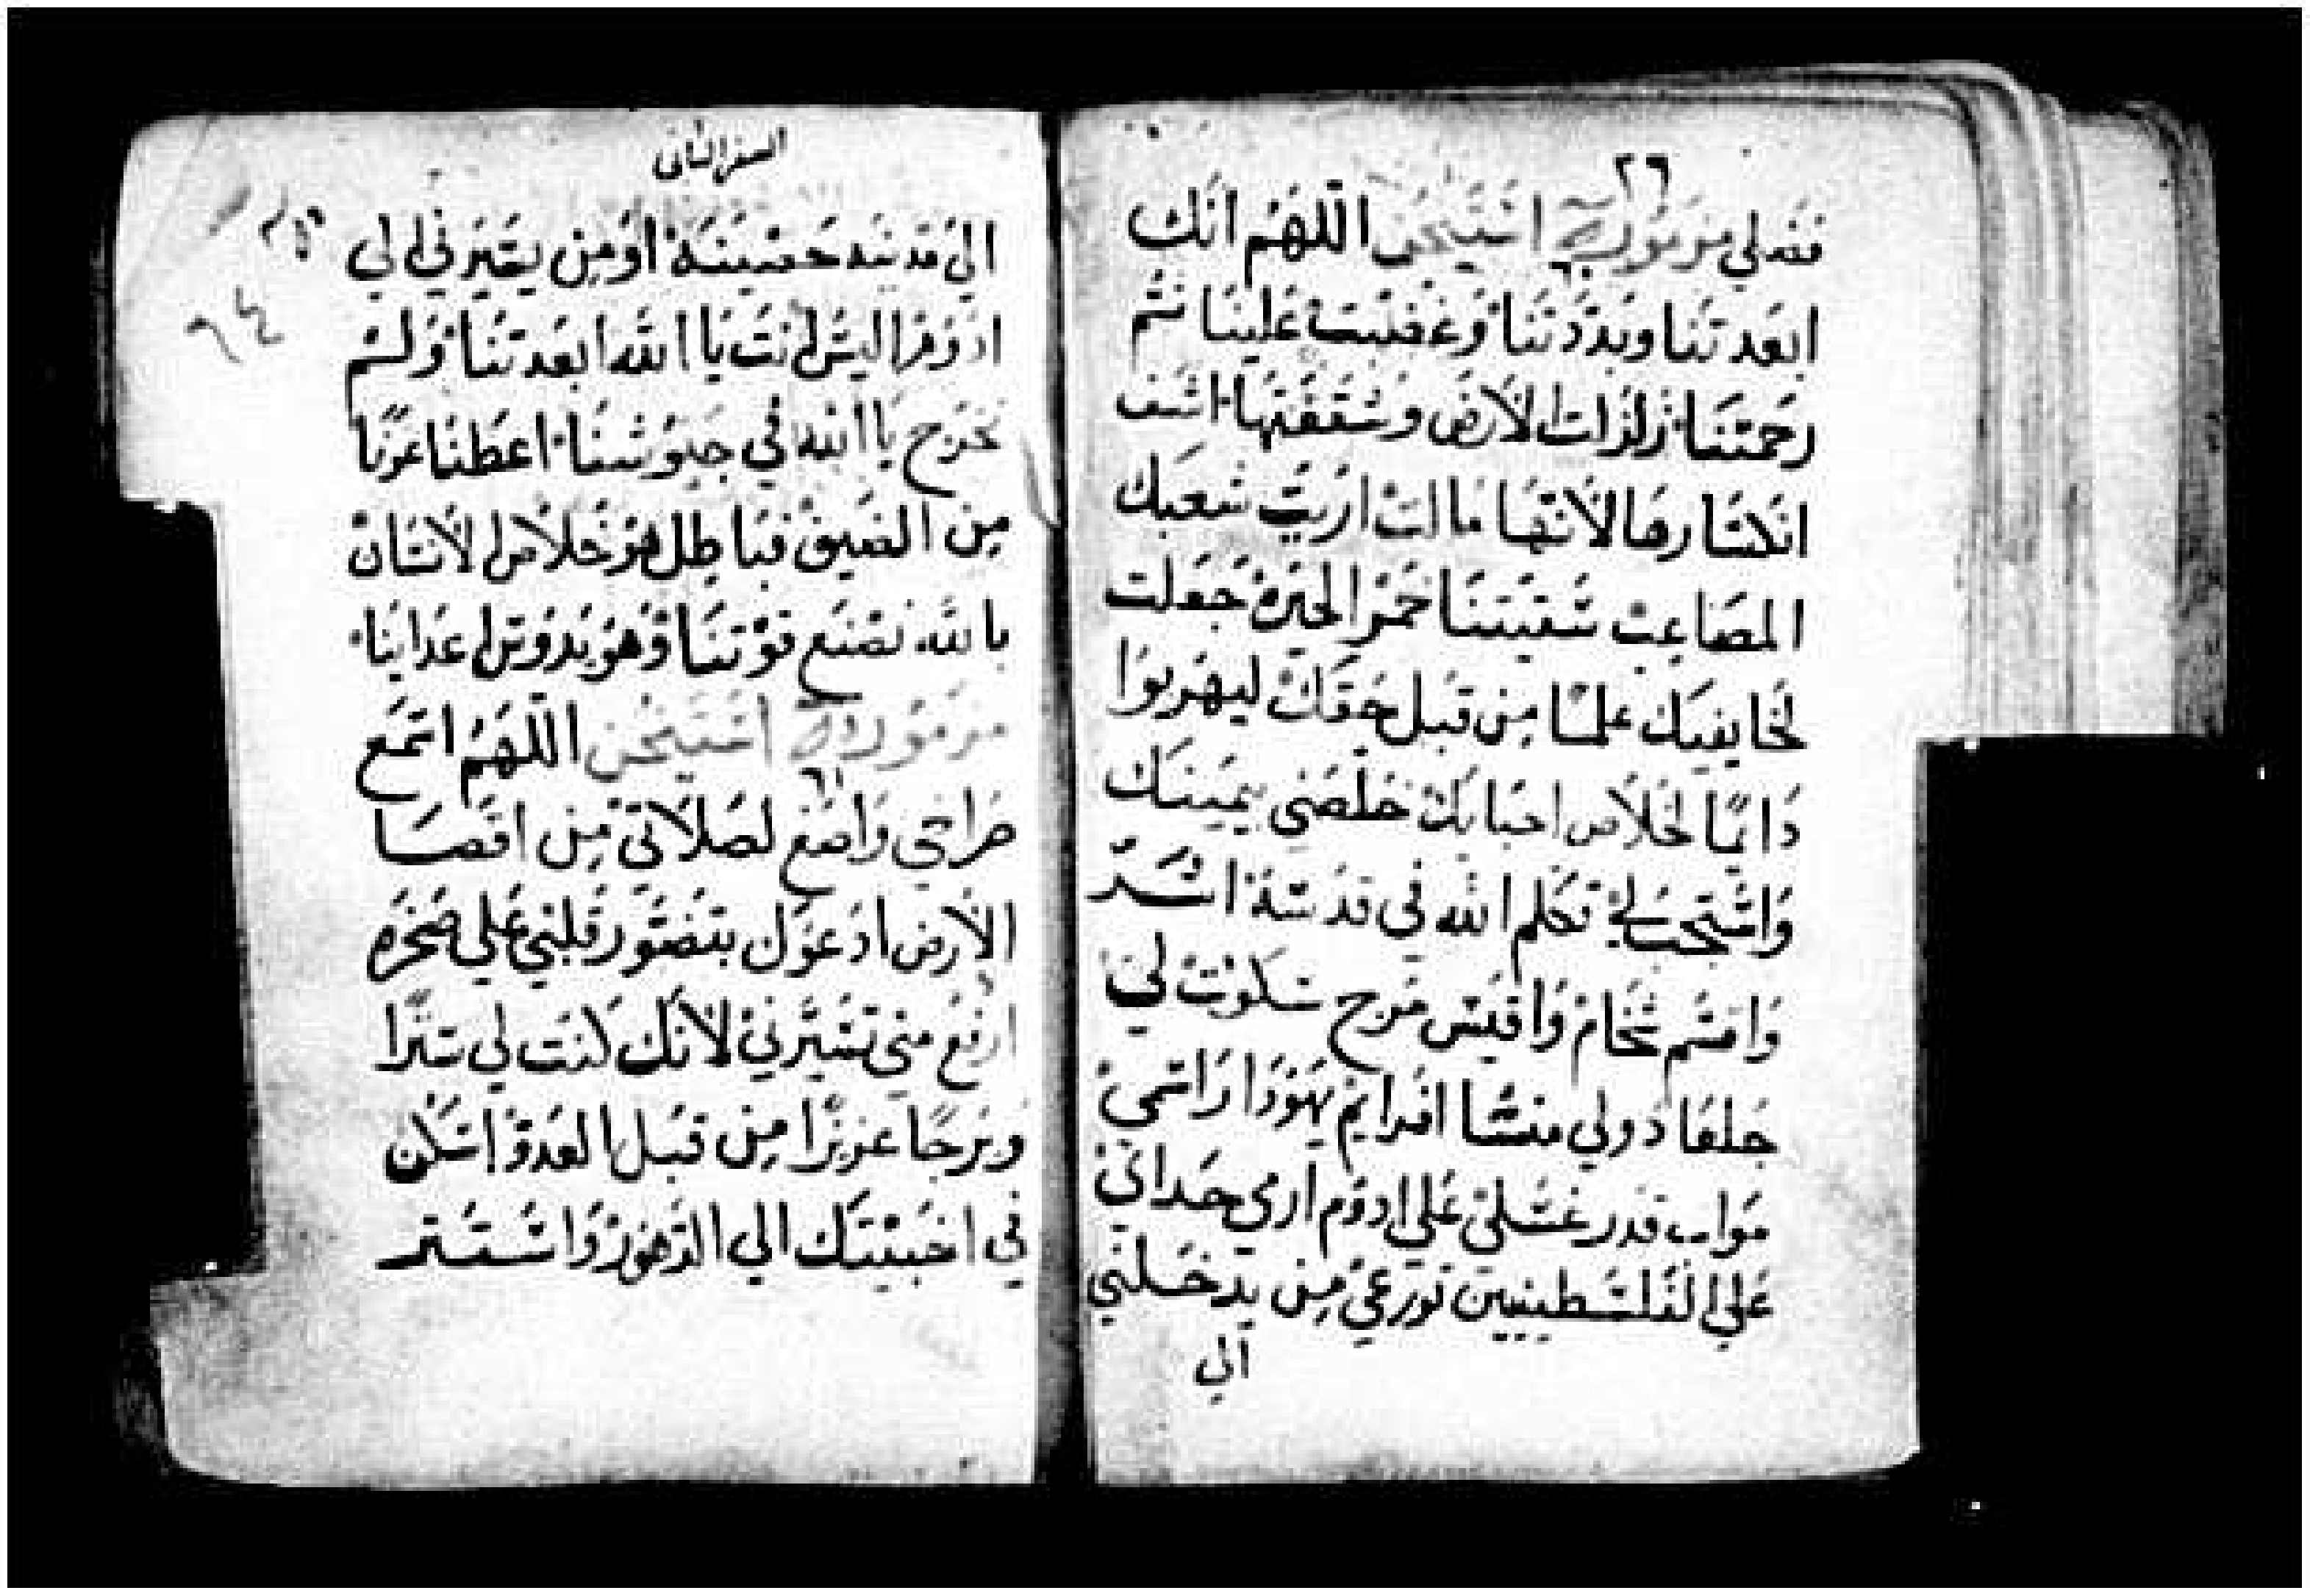 ٢٦
فضلي مزمور استيخن اللهم انك
٦٠
ابعدتنا وبددتنا وغضبت علينا ثم
رحمتنا زلزلت الارض وشققتها اشف
انكسارها لانها مالت اريت شعبك
المصاعب سقيتنا خمر الحيرة جعلت
لخايفيك علما من قبل حقك ليهربوا
دايمًا لخلاص احبابك خلصني بيمينك
واستجب لي تكلم الله في قدسه اسر
واقسم شخام واقيس مرج سكوت لي
جلعاد ولي منسا افرايم يهودا راسي
مواب قدر غسلي علي ادوم اري حداي
علي الفلسطينيين تورعي من يدخلني
الي
السفر الثاني
٦٤
الي مدينه حصينة او من يسيرني لي
ادوم اليس انت يا الله ابعدتنا ولم
تخرج يا الله في جيوشنا اعطنا عونا
من الضيق فباطل هو خلاص الانسان
بالله نصنع قوتنا وهو يدوس اعداينا
مزمور استيخن اللهم اسمع
٦١
صراخي واصغ لصلاتي من اقصا
الارض ادعوك بتضور قلبي علي صخره
ارفع مني تسيرني لانك كنت لي سترا
وبرجًا عزيزًا من قبل العدو اسكن
في اخبيتك الي الدهور واستتر